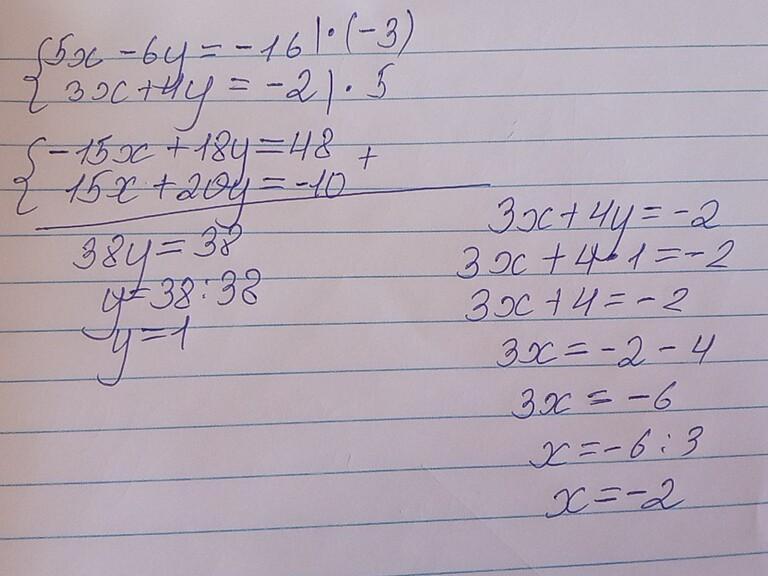 5x - 6y = -16 | · (-3)
3x + 4y = -2 | · 5
-15x + 18y = 48 +
15x + 20y = -10
38y = 38
y = 38 : 38
y = 1
3x + 4y = -2
3x + 4 · 1 = -2
3x + 4 = -2
3x = -2 - 4
3x = -6
x = -6 : 3
x = -2